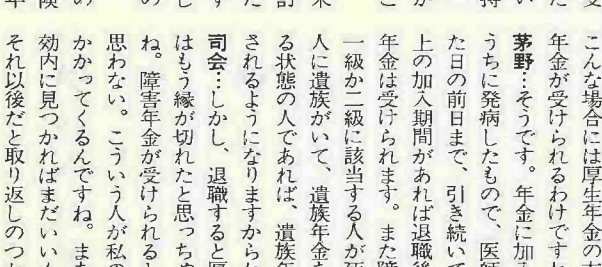 こんな場合には厚生年金の
年金が受けられるわけです
茅野…そうです。年金に加
うちに発病したもので、医
た日の前日まで、引き続いて
上の加入期間があれば退職後
年金は受けられます。また障
一級か二級に該当する人が死
人に遺族がいて、遺族年金を
る状態の人であれば、遺族年
されるようになりますから
司会…しかし、退職すると厚
はもう縁が切れたと思っちゃ
ね。障害年金が受けられると
思わない。こういう人が私の
かかってくるんですね。ま
効内に見つかればまだいい
それ以後だと取り返しのつ